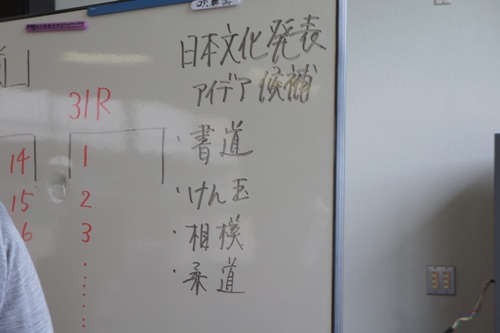 日本文化発表
アイデア候補
・書道
・けん玉
・相模
・柔道
31R
1
2
3
14
15
6